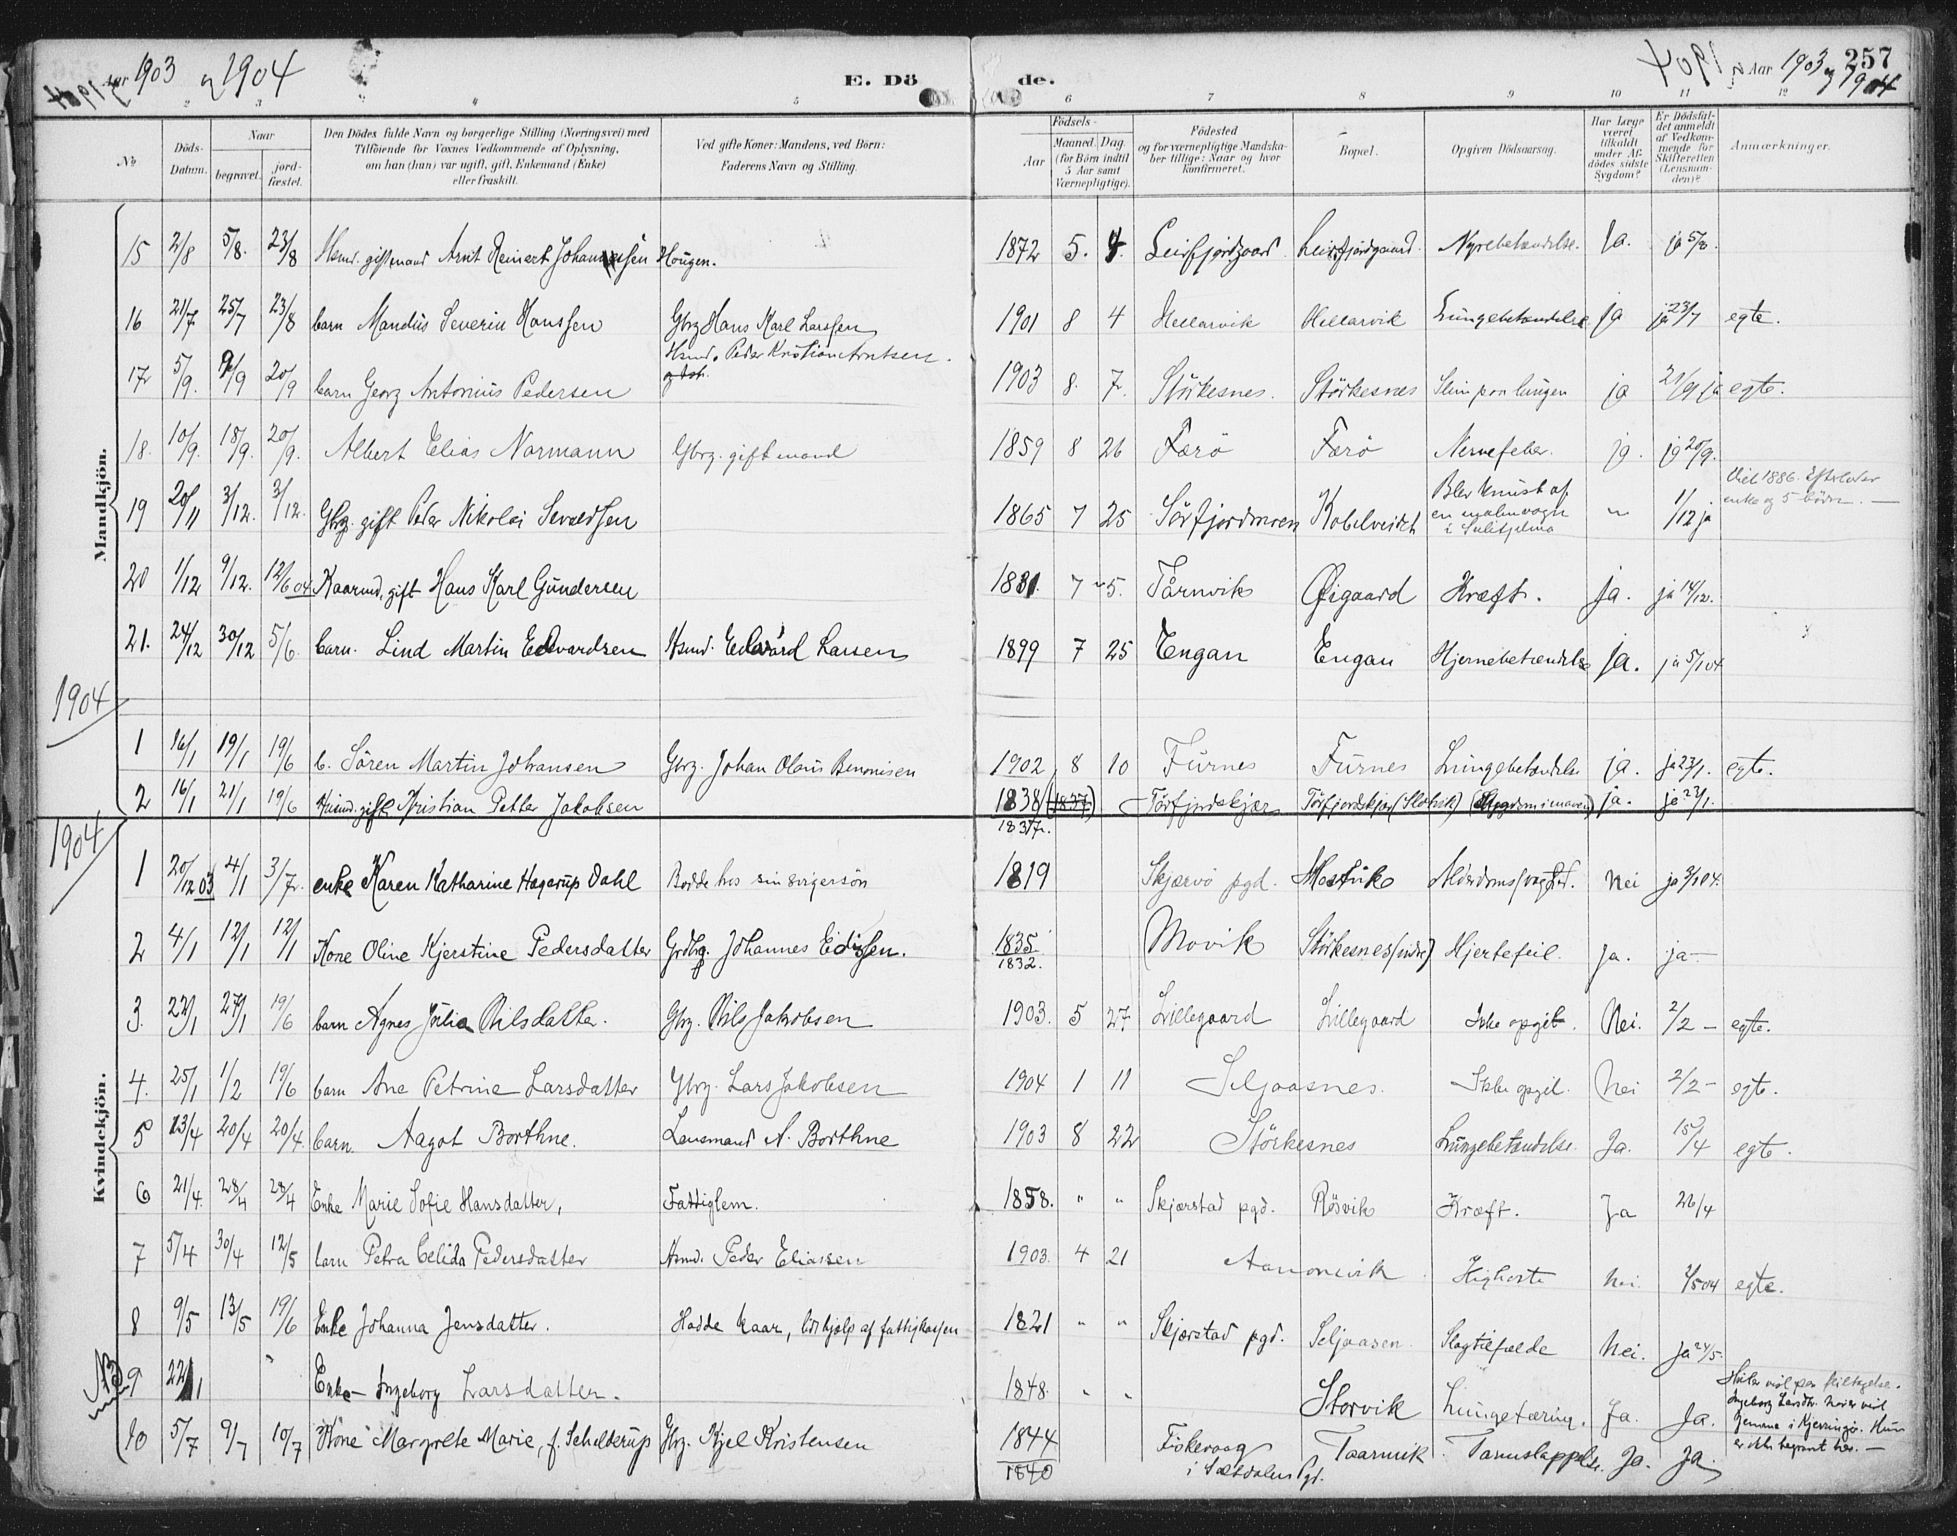 Aar 1903 og 1904
E. Döde.
Aar 1903 og 1904
257
No
Döds-Datum.
Naar
begravet.
jord-fæstet.
Den Dödes fulde Navn og borgerlige Stilling (Næringsvei) med
Tilföiende for Voxnes Vedkommende af Oplysning,
om han (hun) var ugift, gift, Enkemand (Enke)
eller fraskilt.
Ved gifte Koner: Mandens, ved Børn:
Faderens Navn og Stilling.
Födsels-
Aar
Maaned.
Dag.
(for Börn indtil
5 Aar samt
Værnepligtige).
Födested
og for værnepligtige Mandska-
ber tillige: Naar og hvor
konfirmeret.
Bopæl.
Opgiven Dödsaarsag.
Har Læge
været
tilkaldt
under Af-
dödes sidste
Sygdom?
Er Dödsfal-
det anmeldt
af Vedkom-
mende for
Skifteretten
(Lensman-
den)?
Anmærkninger.
Mandkjön.
15 2/8 5/8. 23/8 Hsmd. gift mand Arnt Reinert Johannesen Hougen. 1872 5. 4. Leirfjordgaard Leirfjordgaard. Nyrebetændelse. Ja. ja 5/8.
16 21/7 25/7 23/8 barn Mandus Severin Hanssen Gbrg Hans Karl Larssen 1901 8 4 Hellarvik Hellarvik Lungebetændelse ja ja 23/7 egte.
17 5/9. 9/9 20/9 barn Georg Antonius Pedersen Hsmd. Peder Kristian Arntsen. 1903 8. 7. Störkesnes. Störkesnes Slim paa lungen ja 21/9 ja egte.
18. 10/9. 18/9. 20/9. Albert Elias Normann Gbrg. gift mand 1859 8 26 Færö Færö Nervefeber. ja. ja 20/9.
19 20/11 3/12. 3/12. Gbrg. gift Peder Nikolai Sevaldsen 1865 7 25 Sörfjordmoen Kobelveidet Blev knust af
en malmvogn
i Sulitjelma " 1/12 ja Viet 1886. Efterlader
enke og 5 börn. —
20 1/12 9/12. 12/6 04 Kaarmd. gift Hans Karl Gundersen 1831. 7 5. Tårnvik Øigaard Kræft. Ja. ja 14/12.
21. 24/12 30/12 5/6. barn. Lind Martin Edvardsen Hsmd. Edvard Larsen 1899 7 25 Engan Engan Hjernebetændelse ja. ja 5/1 04
1904
1 16/1 19/1 19/6 b. Sören Martin Johansen Gbrg. Johan Olaus Benonisen 1902 8 10 Furnes Furnes Lungebetændelse ja. ja 23/1. egte.
2 16/1 21/1 19/6 Hsmd. gift Kristian Petter Jakobsen 1838 (1837) Törfjordskjær Törfjordskjær ja. ja 23/1.
1837.
1904
Kvindekjön.
1 20/12 03 4/1 3/7. enke Karen Katharine Hagerup Dahl Bodde hos sin svigersön 1819 Skjærvö pgd. Mostvik Alderdomssvaghed. Nei ja 3/1 04.
2 4/1 12/1 12/1 Kone Oline Kjerstine Pedersdatter Grdbg. Johannes Edissen. 1835.
1832. Movik Störkesnes (indre) Hjertefeil. Ja. ja —
3. 22/1 27/1 19/6 barn Agnes Julia Nilsdatter. Gbrg. Nils Jakobsen 1903. 5 27 Lillegaard Lillegaard Ikke opgit. Nei. 2/2 — egte.
4. 25/1 1/2 19/6 barn Ane Petrine Larsdatter Gbrg. Lars Jakobsen 1904 1 11 Seljaasnes. Ikke opgit. Nei 2/2 — egte.
5 13/4 20/4 20/4. barn. Aagot Borthne. Lensmand A. Borthne 1903 8 22 Störkesnes Lungebetændelse. Ja. 15/4 egte.
6 21/4. 28/4 28/4 Enke Marie Sofie Hansdatter, Fattiglem. 1858. " " Skjærstad pgd. Rösvik Kræft. Ja 26/4
7 5/4 30/4 12/5 barn Petra Celida Pedersdatter Hsmd. Peder Eliassen 1903. 4 21 Aanonsvik Kighoste Nei. 2/5 04 egte.
8 9/5 13/5 19/6 Enke Johanna Jensdatter. Hadde kaar, lidt hjælp af fattigkassen 1821 " " Skjærstad pgd. Seljaasen Slagtilfælde Nei. Ja 24/5.
NB 9 22/1 " Enke Ingeborg Larsdatter. 1848. " " Storvik Lungetæring. Ja. Ja.
10 5/7 9/7 10/7 Kone Margrete Marie, f. Schelderup Gbrg. Kjel Kristensen 1844
1840 Fiskevaag
i Saltdalens Pgd. Taarnvik Ja. Ja.